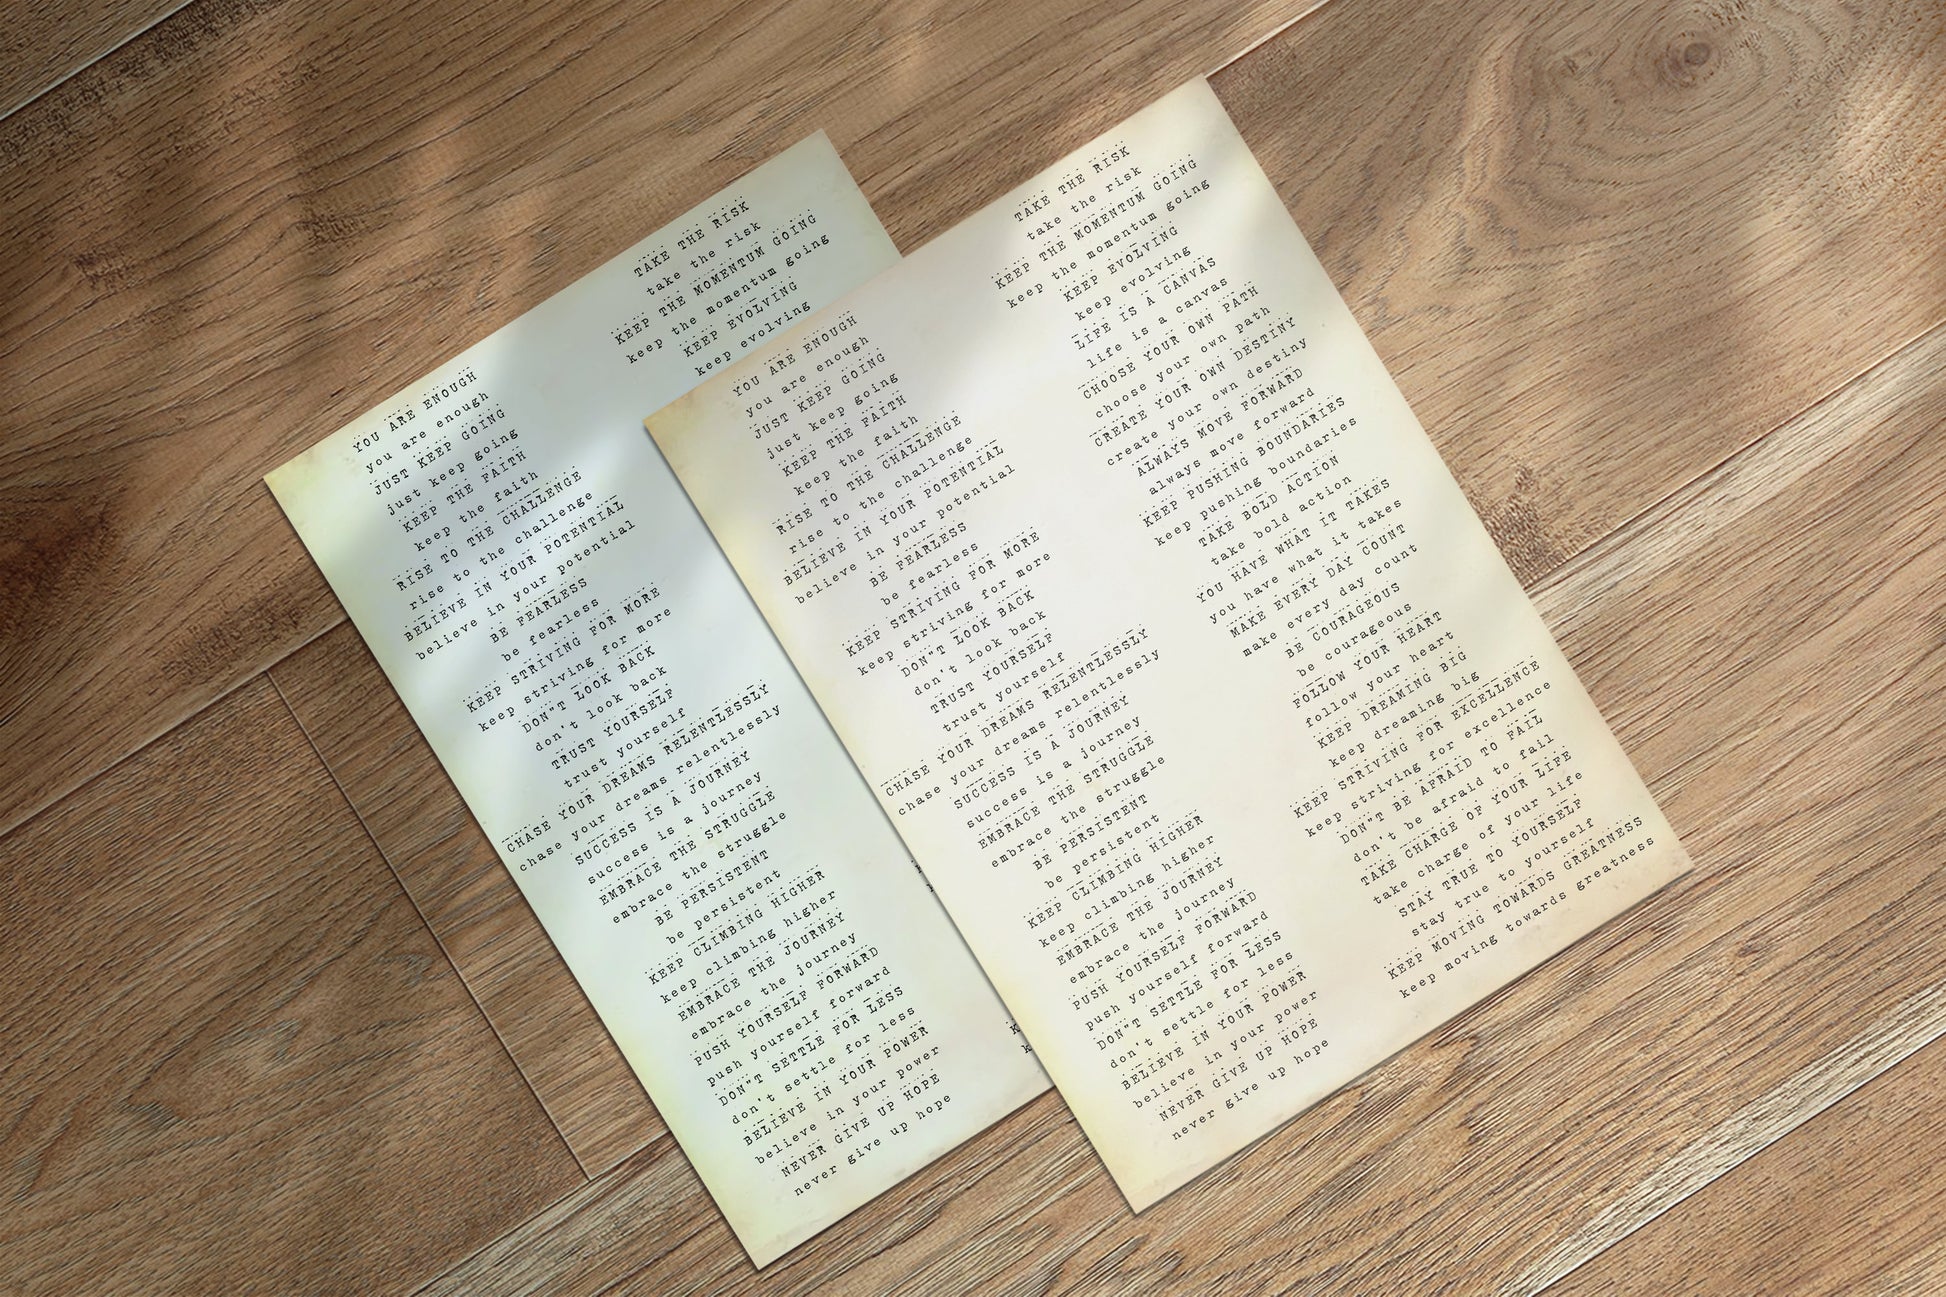 YOU ARE ENOUGH
you are enough
JUST KEEP GOING
just keep going
KEEP THE FAITH
keep the faith
RISE TO THE CHALLENGE
rise to the challenge
BELIEVE IN YOUR POTENTIAL
believe in your potential
BE FEARLESS
be fearless
KEEP STRIVING FOR MORE
keep striving for more
DON"T LOOK BACK
don't look back
TRUST YOURSELF
trust yourself
CHASE YOUR DREAMS RELENTLESSLY
chase your dreams relentlessly
SUCCESS IS A JOURNEY
success is a journey
EMBRACE THE STRUGGLE
embrace the struggle
BE PERSISTENT
be persistent
KEEP CLIMBING HIGHER
keep climbing higher
EMBRACE THE JOURNEY
embrace the journey
PUSH YOURSELF FORWARD
push yourself forward
DON"T SETTLE FOR LESS
don't settle for less
BELIEVE IN YOUR POWER
believe in your power
NEVER GIVE UP HOPE
never give up hope
TAKE THE RISK
take the risk
KEEP THE MOMENTUM GOING
keep the momentum going
KEEP EVOLVING
keep evolving
YOU ARE ENOUGH
you are enough
JUST KEEP GOING
just keep going
KEEP THE FAITH
keep the faith
RISE TO THE CHALLENGE
rise to the challenge
BELIEVE IN YOUR POTENTIAL
believe in your potential
BE FEARLESS
be fearless
KEEP STRIVING FOR MORE
keep striving for more
DON"T LOOK BACK
don't look back
TRUST YOURSELF
trust yourself
CHASE YOUR DREAMS RELENTLESSLY
chase your dreams relentlessly
SUCCESS IS A JOURNEY
success is a journey
EMBRACE THE STRUGGLE
embrace the struggle
BE PERSISTENT
be persistent
KEEP CLIMBING HIGHER
keep climbing higher
EMBRACE THE JOURNEY
embrace the journey
PUSH YOURSELF FORWARD
push yourself forward
DON"T SETTLE FOR LESS
don't settle for less
BELIEVE IN YOUR POWER
believe in your power
NEVER GIVE UP HOPE
never give up hope
TAKE THE RISK
take the risk
KEEP THE MOMENTUM GOING
keep the momentum going
KEEP EVOLVING
keep evolving
LIFE IS A CANVAS
life is a canvas
CHOOSE YOUR OWN PATH
choose your own path
CREATE YOUR OWN DESTINY
create your own destiny
ALWAYS MOVE FORWARD
always move forward
KEEP PUSHING BOUNDARIES
keep pushing boundaries
TAKE BOLD ACTION
take bold action
YOU HAVE WHAT IT TAKES
you have what it takes
MAKE EVERY DAY COUNT
make every day count
BE COURAGEOUS
be courageous
FOLLOW YOUR HEART
follow your heart
KEEP DREAMING BIG
keep dreaming big
KEEP STRIVING FOR EXCELLENCE
keep striving for excellence
DON"T BE AFRAID TO FAIL
don't be afraid to fail
TAKE CHARGE OF YOUR LIFE
take charge of your life
STAY TRUE TO YOURSELF
stay true to yourself
KEEP MOVING TOWARDS GREATNESS
keep moving towards greatness